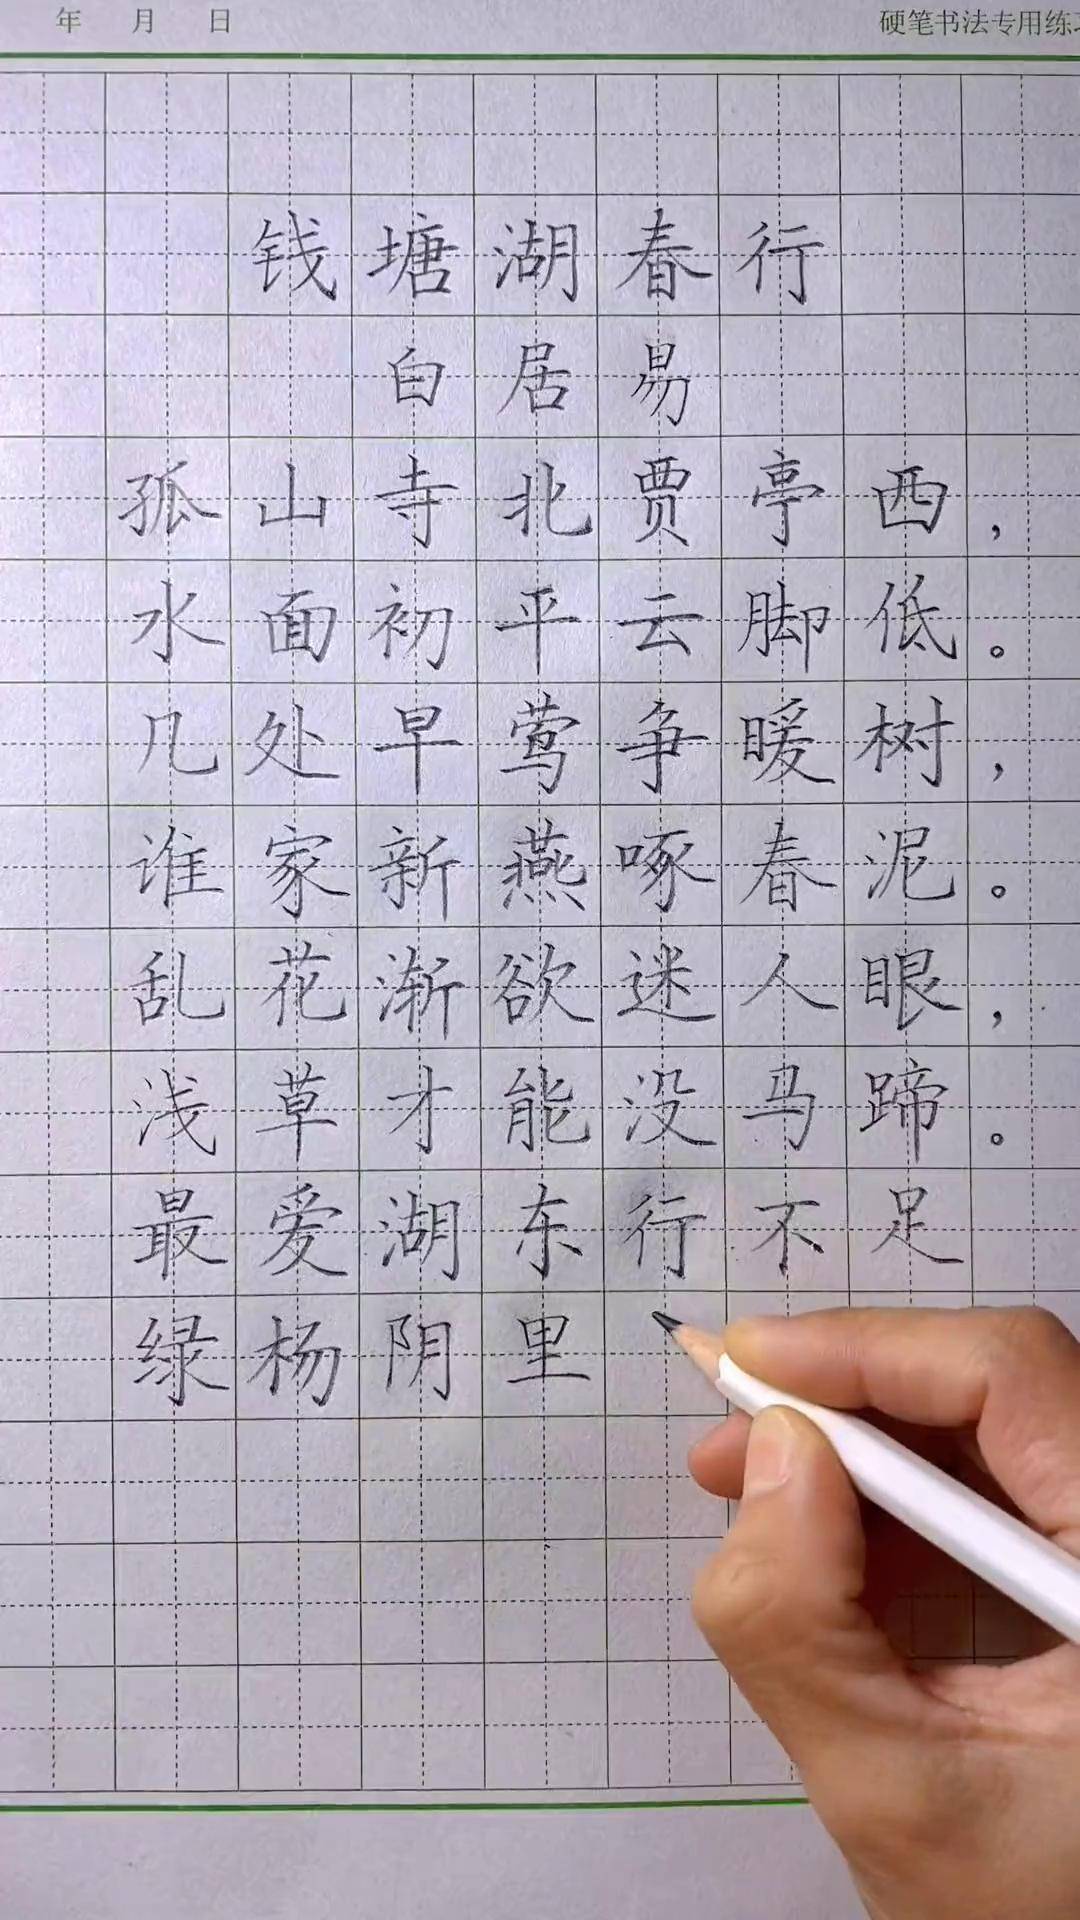 年 月 日 硬笔书法专用练
钱塘湖春行
白居易
孤山寺北贾亭西，
水面初平云脚低。
几处早莺争暖树，
谁家新燕啄春泥。
乱花渐欲迷人眼，
浅草才能没马蹄。
最爱湖东行不足
绿杨阴里